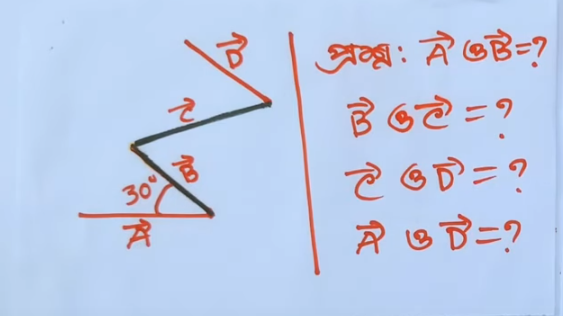 D⃗
C⃗
B⃗
30°
A⃗
প্রশ্ন: A⃗ ও B⃗ = ?
B⃗ ও C⃗ = ?
C⃗ ও D⃗ = ?
A⃗ ও D⃗ = ?